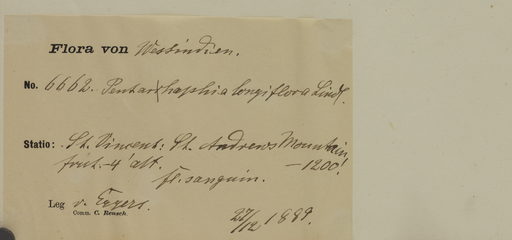 Flora von Westindien.
No. 6662. Pentarhaphia longiflora Lindl.
Statio: St. Vincent: St. Andrews Mountain
frut. - 4' alt. - 1200'!
fl. sanguin.
Leg v. Eggers.
Comm. C. Rensch.
27/12 1889.